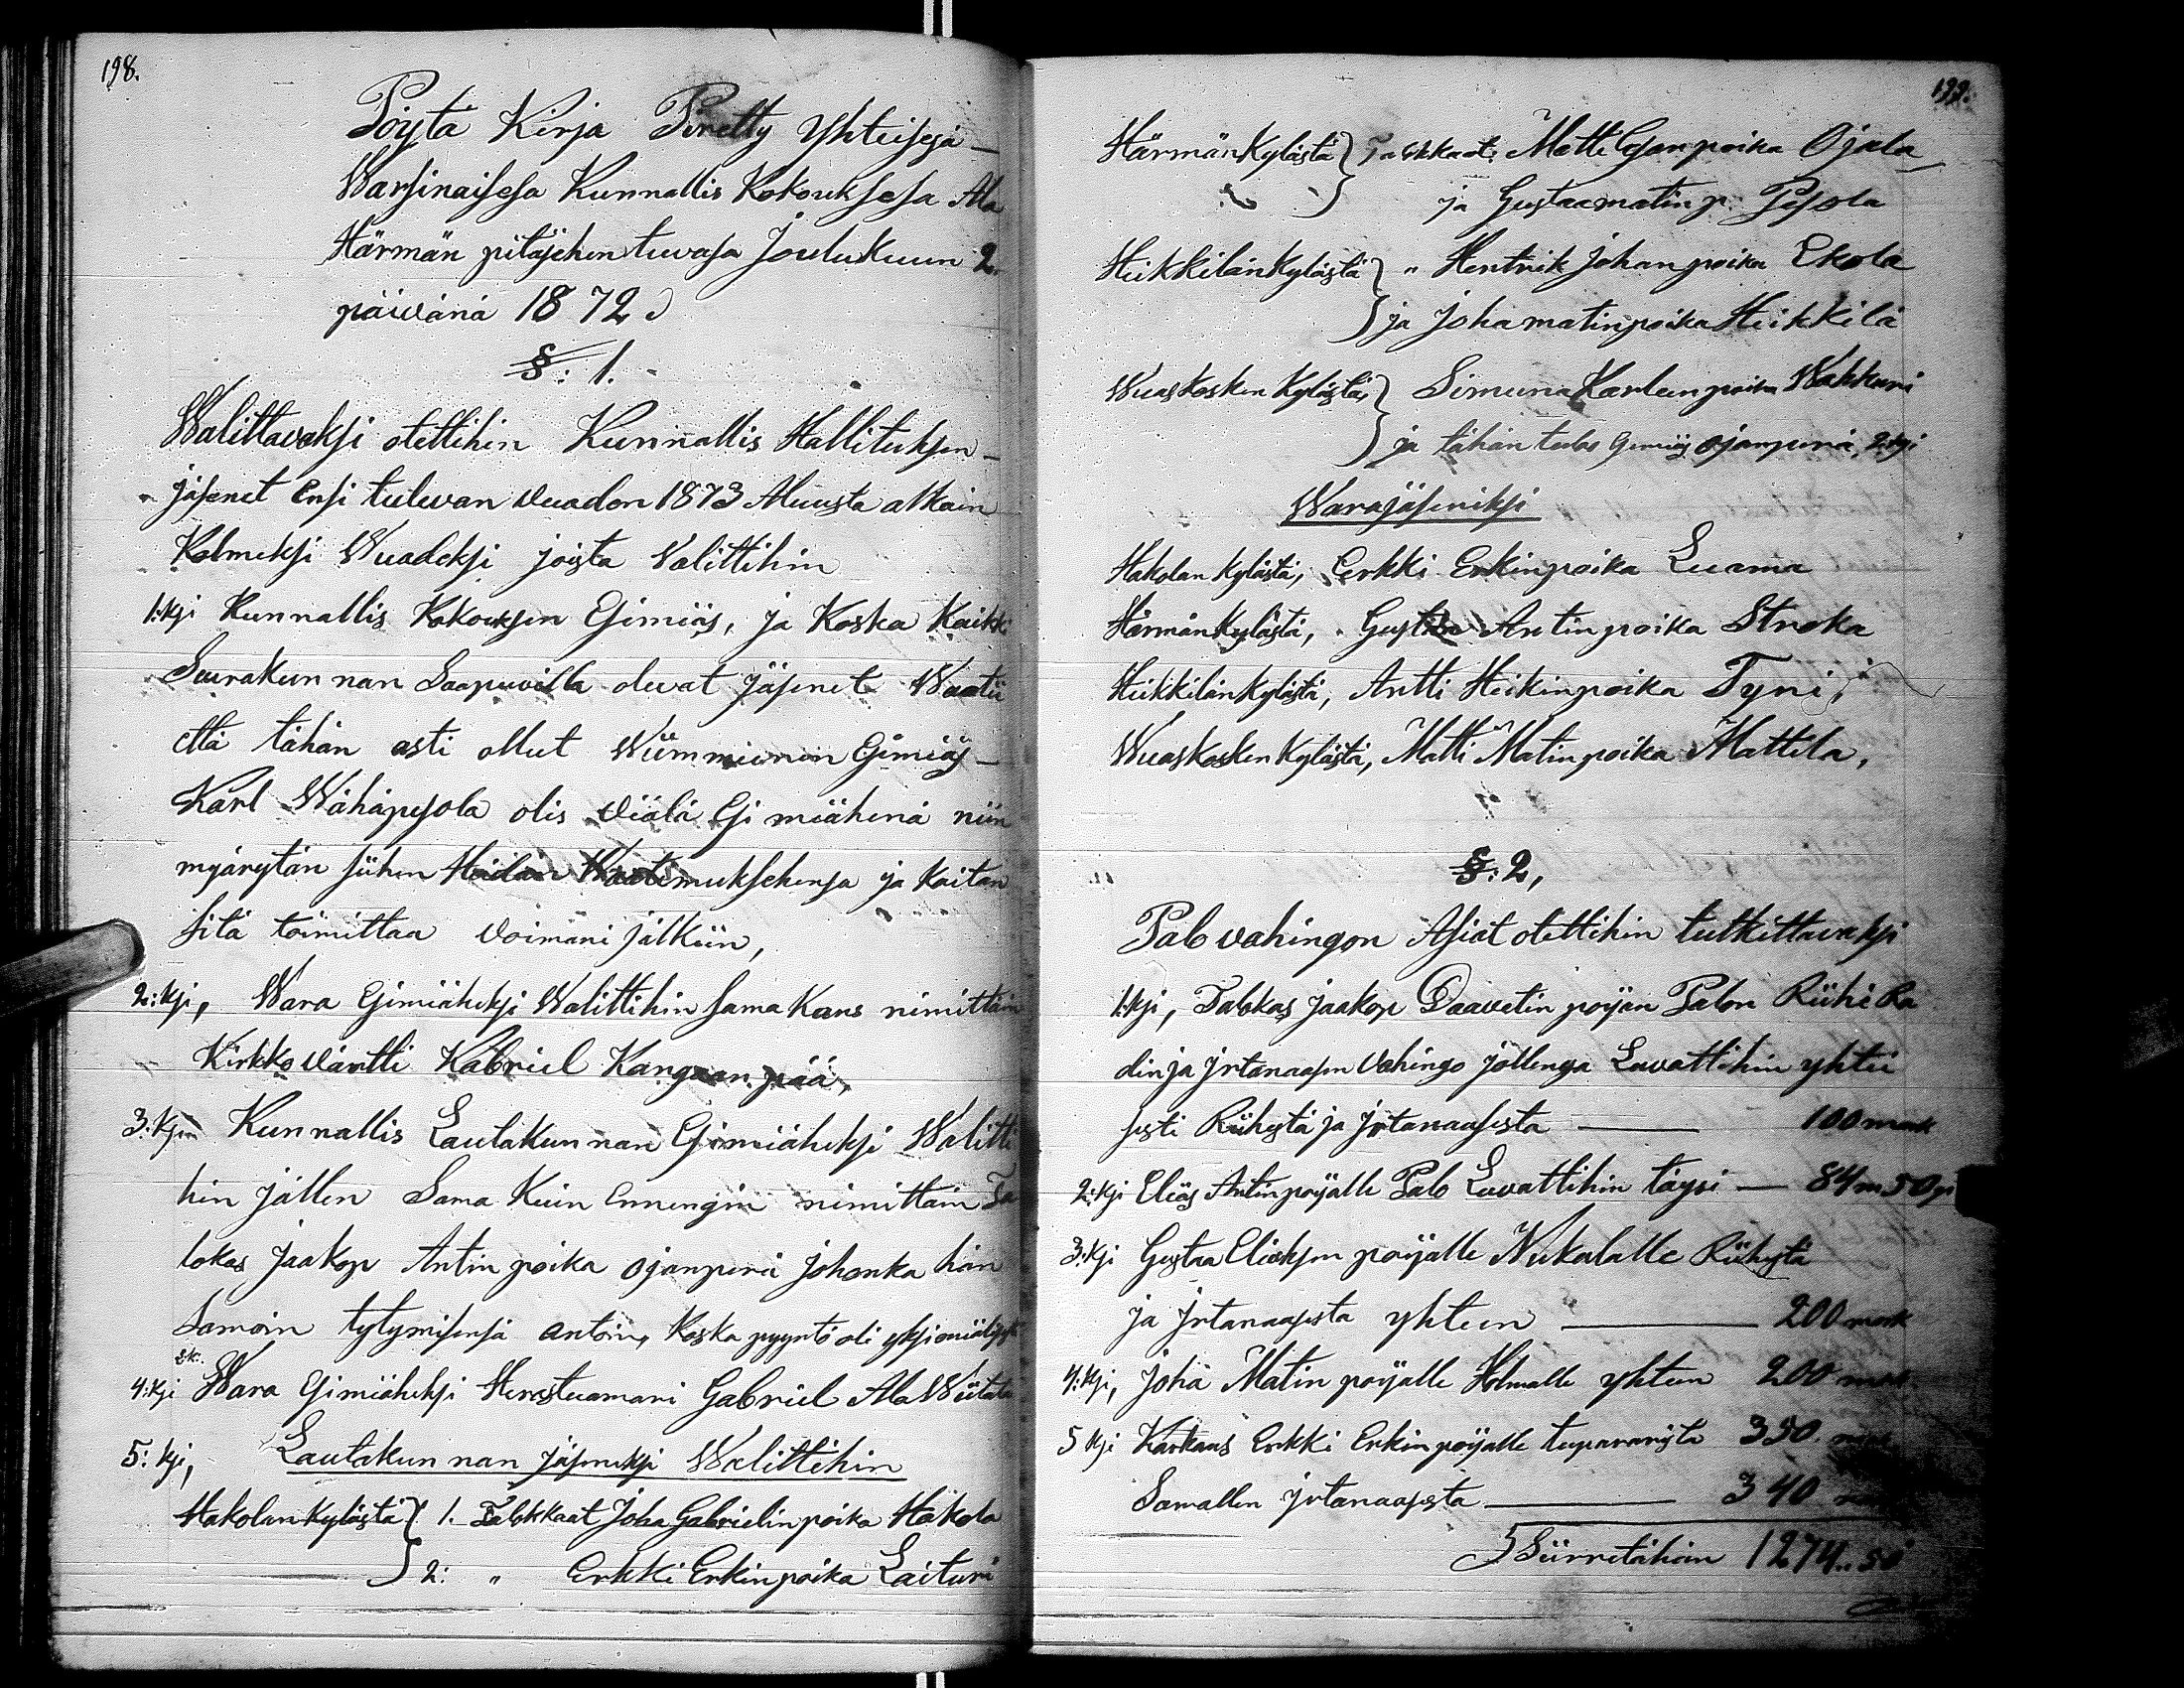 198.
Pöytä Kirja Piretty Yhteisesä
Warsinaisesa Kunnallis Kokouksesa Ala
Härmän pitäjehen tuvasa Joulukuun 2.
päivänä 1872
§: 1.
Walittavaksi otettihin Kunnallis Hallituksen
jäsenet Ensi tulevan vuaden 1873 Aluusta alkain
Kolmeksi Wuadeksi joista Valittihin
1:ksi Kunnallis Kokouksen Esimiäs, ja Koska Kaikki
Seurakunnan Saapuvilla olevat jäsenet Waatii
että tähän asti ollut Esimiäs
Karl Wähäpesola olis viälä Esimiähenä niin
myänytän siihen Heidän Waatimuksehensa ja Koitan
sitä toimittaa voimani jälkiin,
2:ksi, Wara Esimiäheksi Walittihin sama Kans nimittäin
Kirkkoväntti Kabriel Kangaanpää,
3:ksi Kunnallis Lautakunnan Esimiäheksi Walitti
hin jällen Sama Kuin Ennengin nimittäin Ta
lokas Jaakop Antinpoika Ojanperä johonka hän
Samoin tytymisensä antoin, Koska pyyntö oli yksimiälisest
4:ksi Wara Esimiäheksi Herastuamari Gabriel AlaWiitala
5:ksi, Lautakunnan jäseneksi Walittihin
Hakolankylästä } 1. Talokkaat Joha Gabrielinpoika Hakola
} 2: " Erkki Erkinpoika Laituri
199.
Härmänkylästä } Talokkaat: Matti Esanpoika Ojala
ja Gustaa matin p. Pesola
Heikkilänkylästä } " Hentrik Johanpoika Ekola
} ja Joha matinpoika Heikkilä
Wuaskosken Kylästä, } Simuna Karlenpoika Wakkuri
} ja tähän tulos Esimiäs Ojanperä, 2:ksi
Warajäseniksi
Hakolan Kylästä, Erkki Erkinpoika Luama
Härmänkylästä, Antinpoika Stroka
Heikkilänkylästä, Antti Heikinpoika Tyni,
Wuaskosken Kylästä, Matti Matinpoika Mattila,
§: 2,
Palovahingon Asiat otettihin tutkittavaksi
1:ksi, Talokas Jaakop Daavetin pojan Palon Riihe Ra
din ja jrtanaasen vahingo jollenga Luvattihin yhtei
sesti Riihestä ja jrtanaasesta — 100 mark
2:ksi Elias Antinpojalle Palo Luvattihin täysi — 84 m 50 pi
3:ksi Gustaa Eliaksen pojalle Nukalalle Riihestä
ja jrtanaasesta yhteen — 200 mark
4:ksi, Joha Matin pojalle Holmalle yhteen 200 mark
5 ksi Karkaus Erkki Erkin pojalle 350 mark
Samallen jrtanaasesta — 340
Siirretähän 1274..50